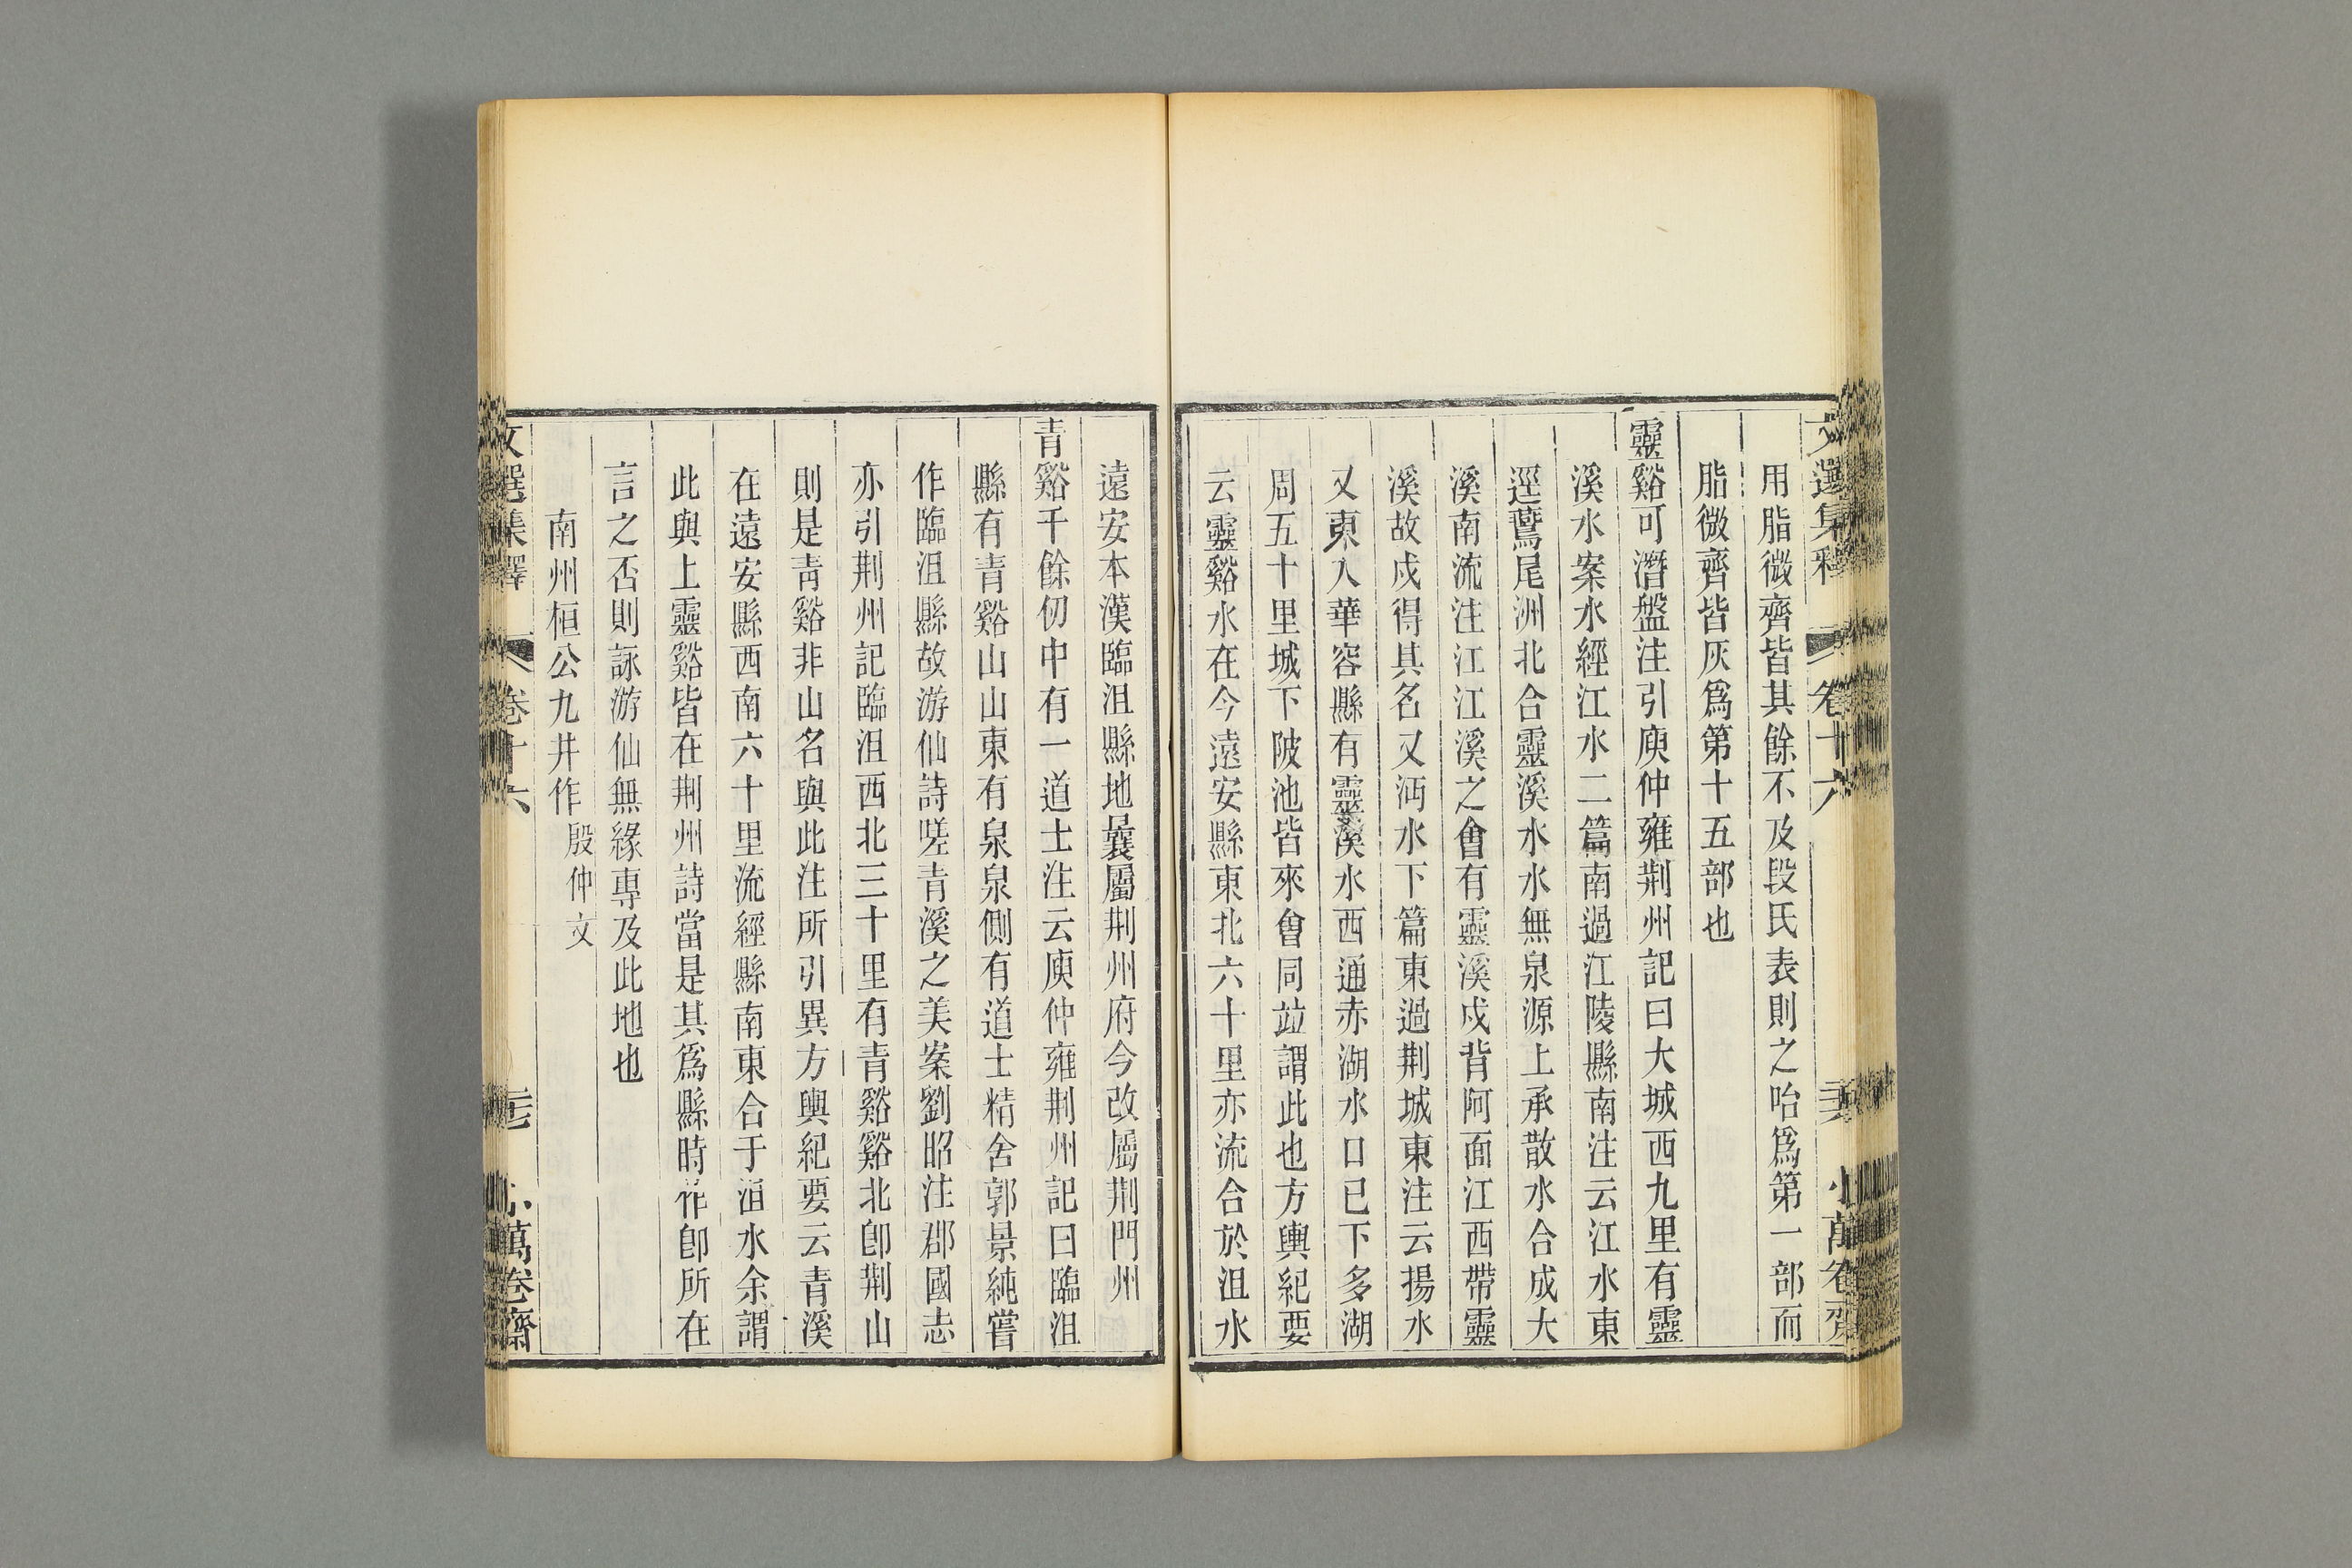 文選集釋 卷十六 小萬卷齋
用脂微齊皆其餘不及段氏表則之咍爲第一部而
脂微齊皆灰爲第十五部也
靈谿可潛盤注引庾仲雍荆州記曰大城西九里有靈
溪水案水經江水二篇南過江陵縣南注云江水東
逕鷰尾洲北合靈溪水水無泉源上承散水合成大
溪南流注江江溪之會有靈溪戍背阿面江西帶靈
溪故戍得其名又沔水下篇東過荆城東注云揚水
又東入華容縣有靈溪水西通赤湖水口已下多湖
周五十里城下陂池皆來會同竝謂此也方輿紀要
云靈谿水在今遠安縣東北六十里亦流合於沮水
遠安本漢臨沮縣地曩屬荆州府今改屬荆門州
青谿千餘仞中有一道士注云庾仲雍荆州記曰臨沮
縣有青谿山山東有泉泉側有道士精舍郭景純嘗
作臨沮縣故游仙詩嗟青溪之美案劉昭注郡國志
亦引荆州記臨沮西北三十里有青谿谿北卽荆山
則是青谿非山名與此注所引異方輿紀要云青溪
在遠安縣西南六十里流經縣南東合于沮水余謂
此與上靈谿皆在荆州詩當是其爲縣時作卽所在
言之否則詠游仙無緣專及此地也
南州桓公九井作 殷仲文
文選集釋 卷十六 小萬卷齋